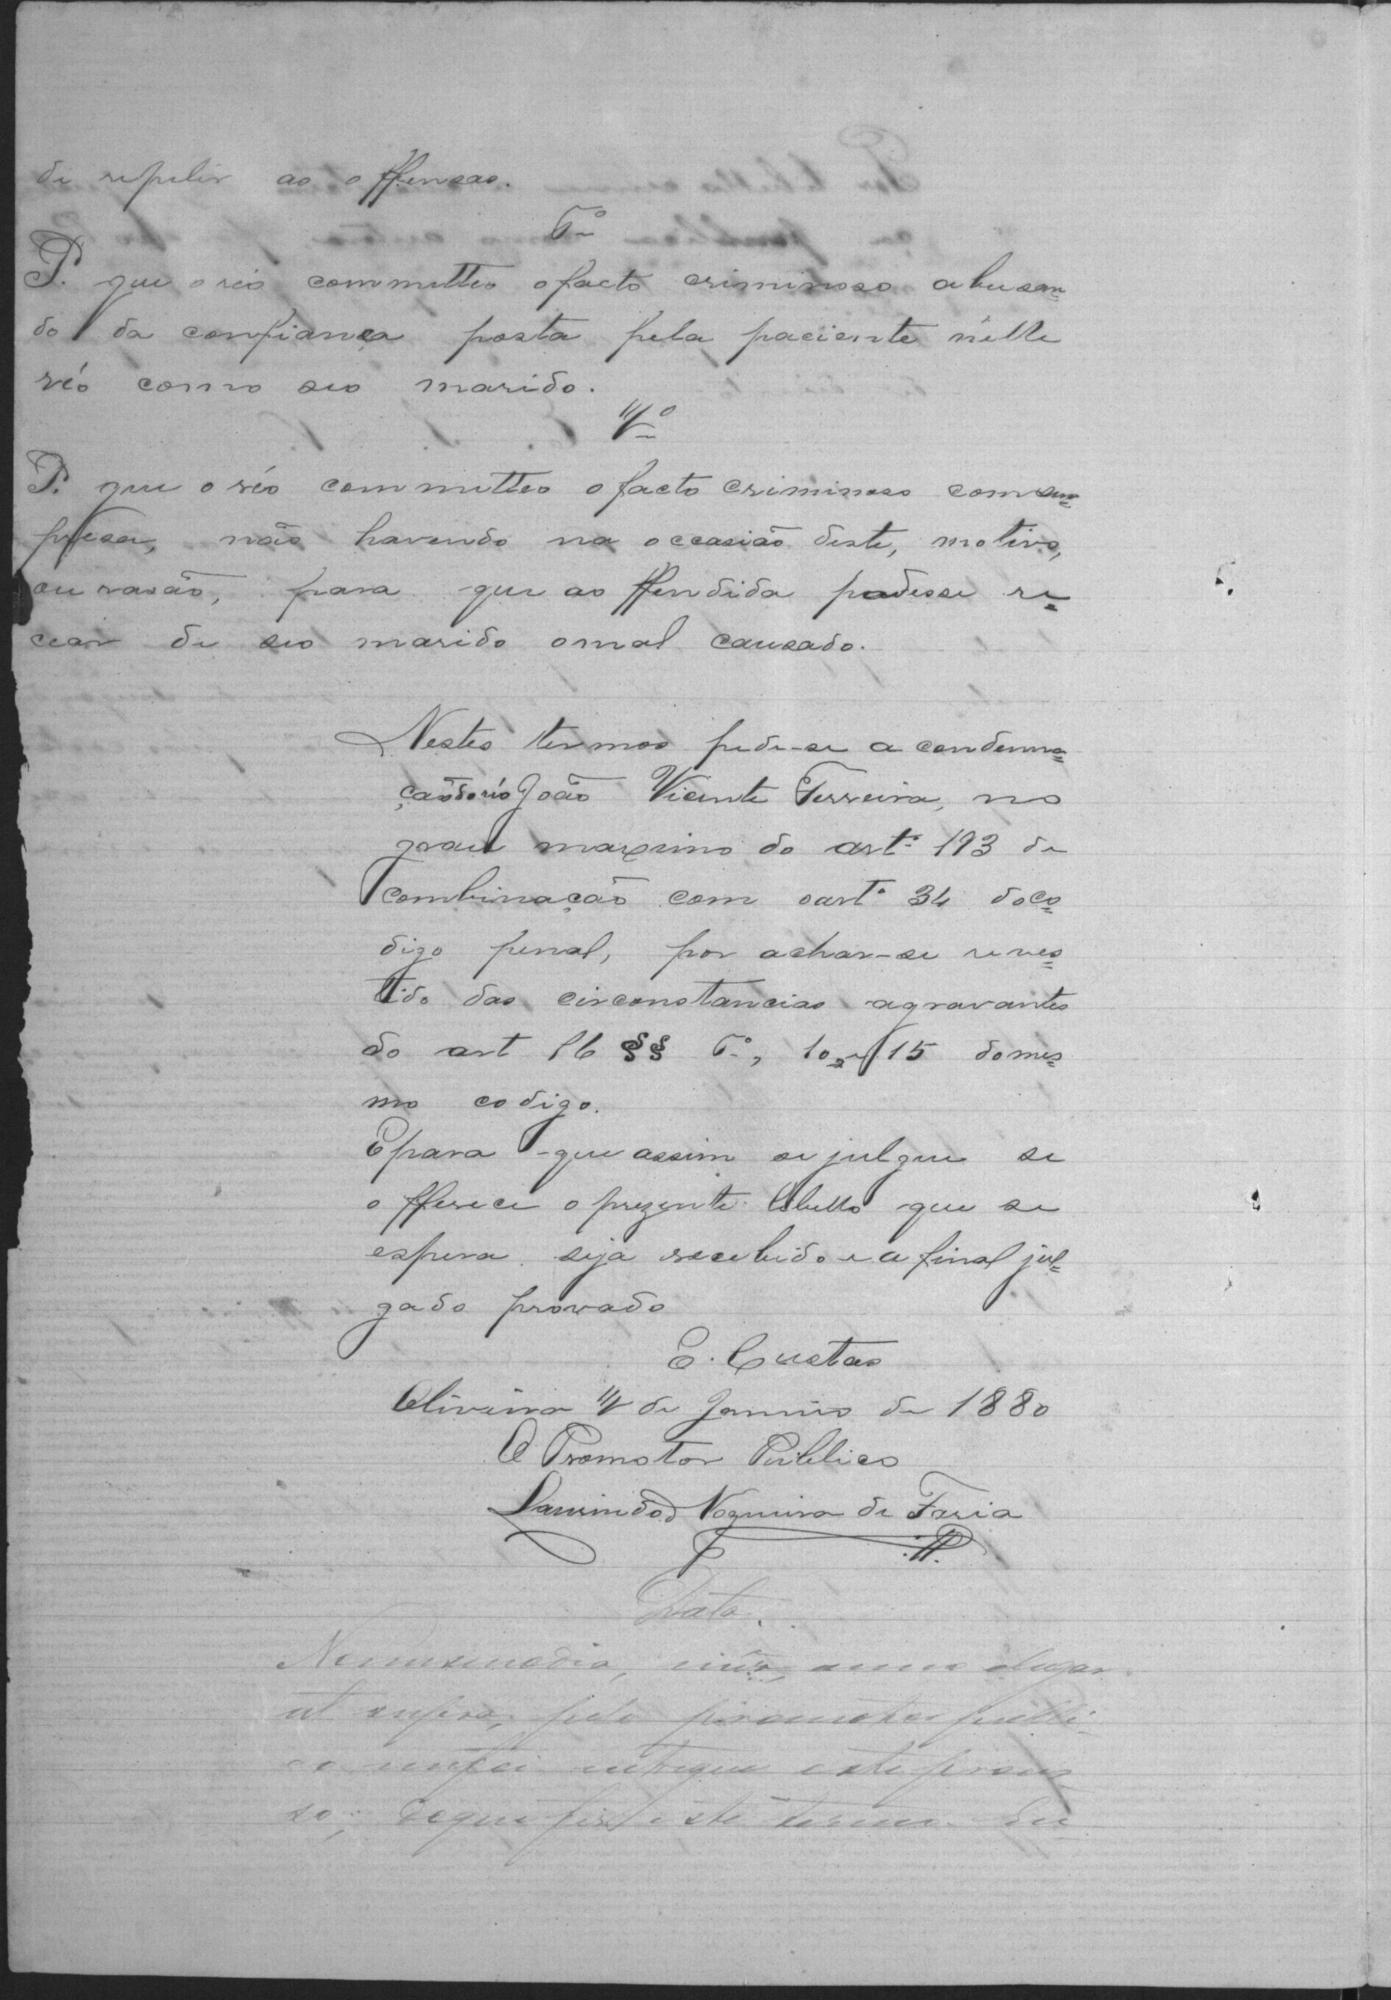 de repelir as offensas.
6º
P. que o réo commetteo o facto criminoso abusan=
do da confiança posta pela paciente nelle
réo como seo marido.
7º
P. que o réo commetteo o facto criminoso com sur=
presa, não havendo na occasião deste, motivo,
ou rasão, para que a offendida podesse re=
cear de seo marido o mal causado.
Nestes termos pede-se a condemna=
ção do réo João Vicente Ferreira, no
grau maximo do artº 193 de
combinação com o artº 34 do co=
digo penal, por achar-se reves=
tido das circonstancias agravantes
do art 16 §§ 6º, 10 e 15 do mes=
mo codigo.
E para que assim se julgue se
offerece o prezente libello que se
espera seja recebido e a final jul=
gado provado
E. Custas
Oliveira de Janeiro de 1880
O Promotor Publico
Laurindo Nogueira de Faria
Data.
No mesmo dia, mês, anno e lugar
ut supra, pelo promotor publi-
co me foi entregue este proces-
so; do que fiz este termo. Eu